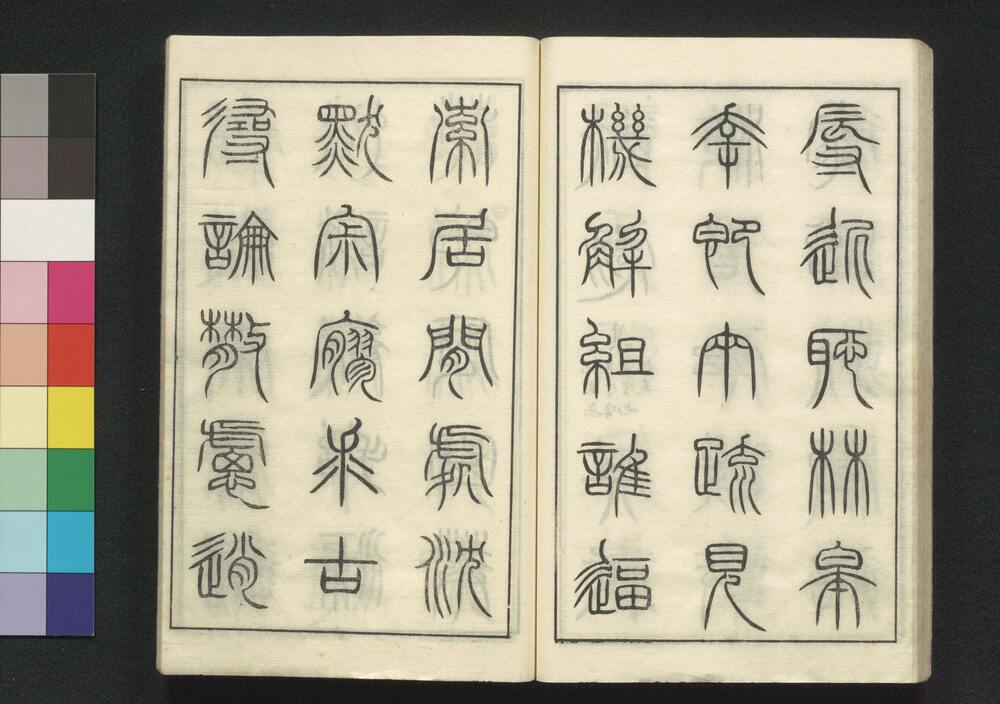 辱近恥林皋
幸即兩疏見
機解組誰逼
索居閒處沈
默寂寥求古
尋論散慮逍